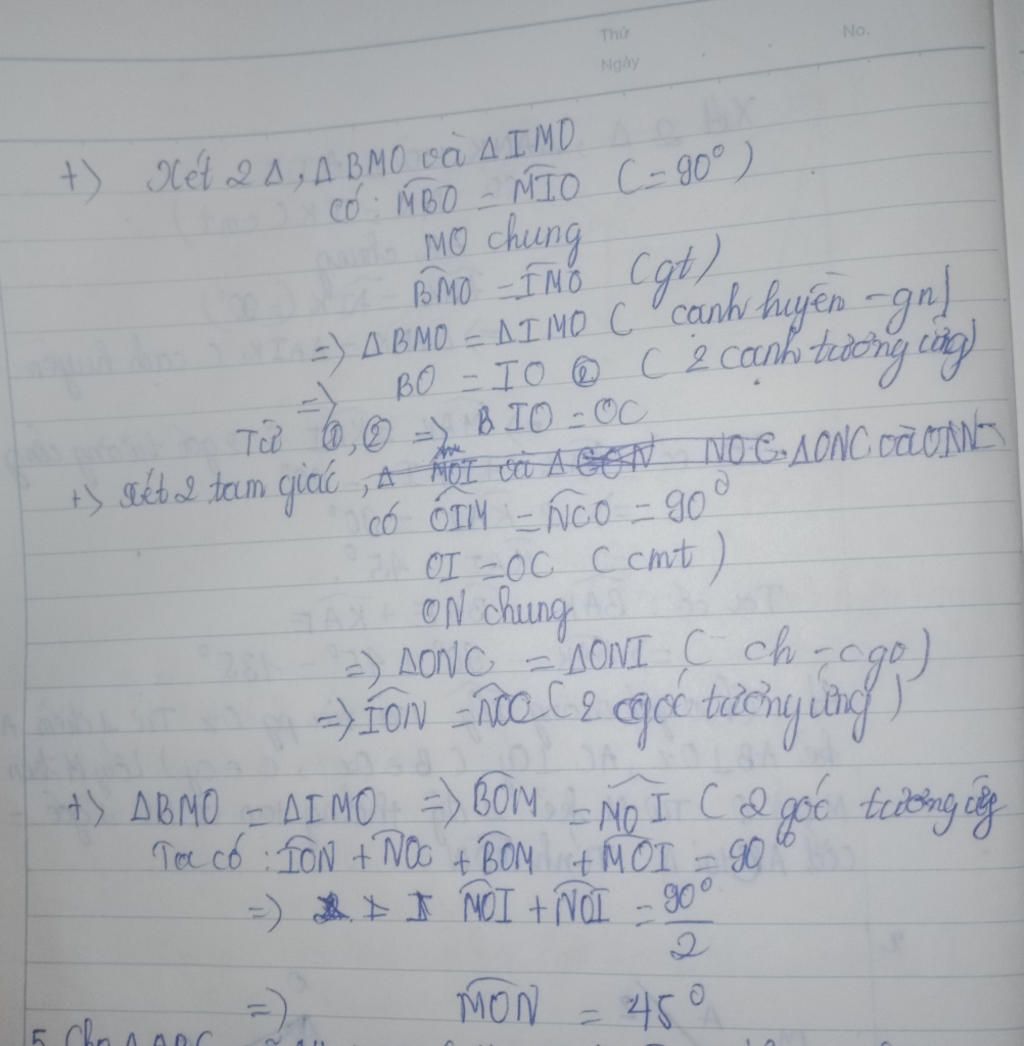 Thứ
No.
Ngày
+) Xét 2 Δ, ΔBMO và ΔIMO
có: MBO = MIO (= 90°)
MO chung
BMO = IMO (gt)
=> ΔBMO = ΔIMO ( canh huyền - gn)
=> BO = IO ② ( 2 canh tương ứng)
Từ ①, ② => IO = OC
+) Xét 2 tam giác, ΔONC và
có OIM = NCO = 90°
OI = OC ( cmt )
ON chung
=> ΔONC = ΔONI ( ch - cgv)
=> ION = NOC ( 2 góc tương ứng )
+) ΔBMO = ΔIMO => BOM = MOI ( 2 góc tương ứng
Ta có : ION + NOC + BOM + MOI = 90°
=> MOI + NOI = 90°/2
=> MON = 45°
5. Cho ΔABC